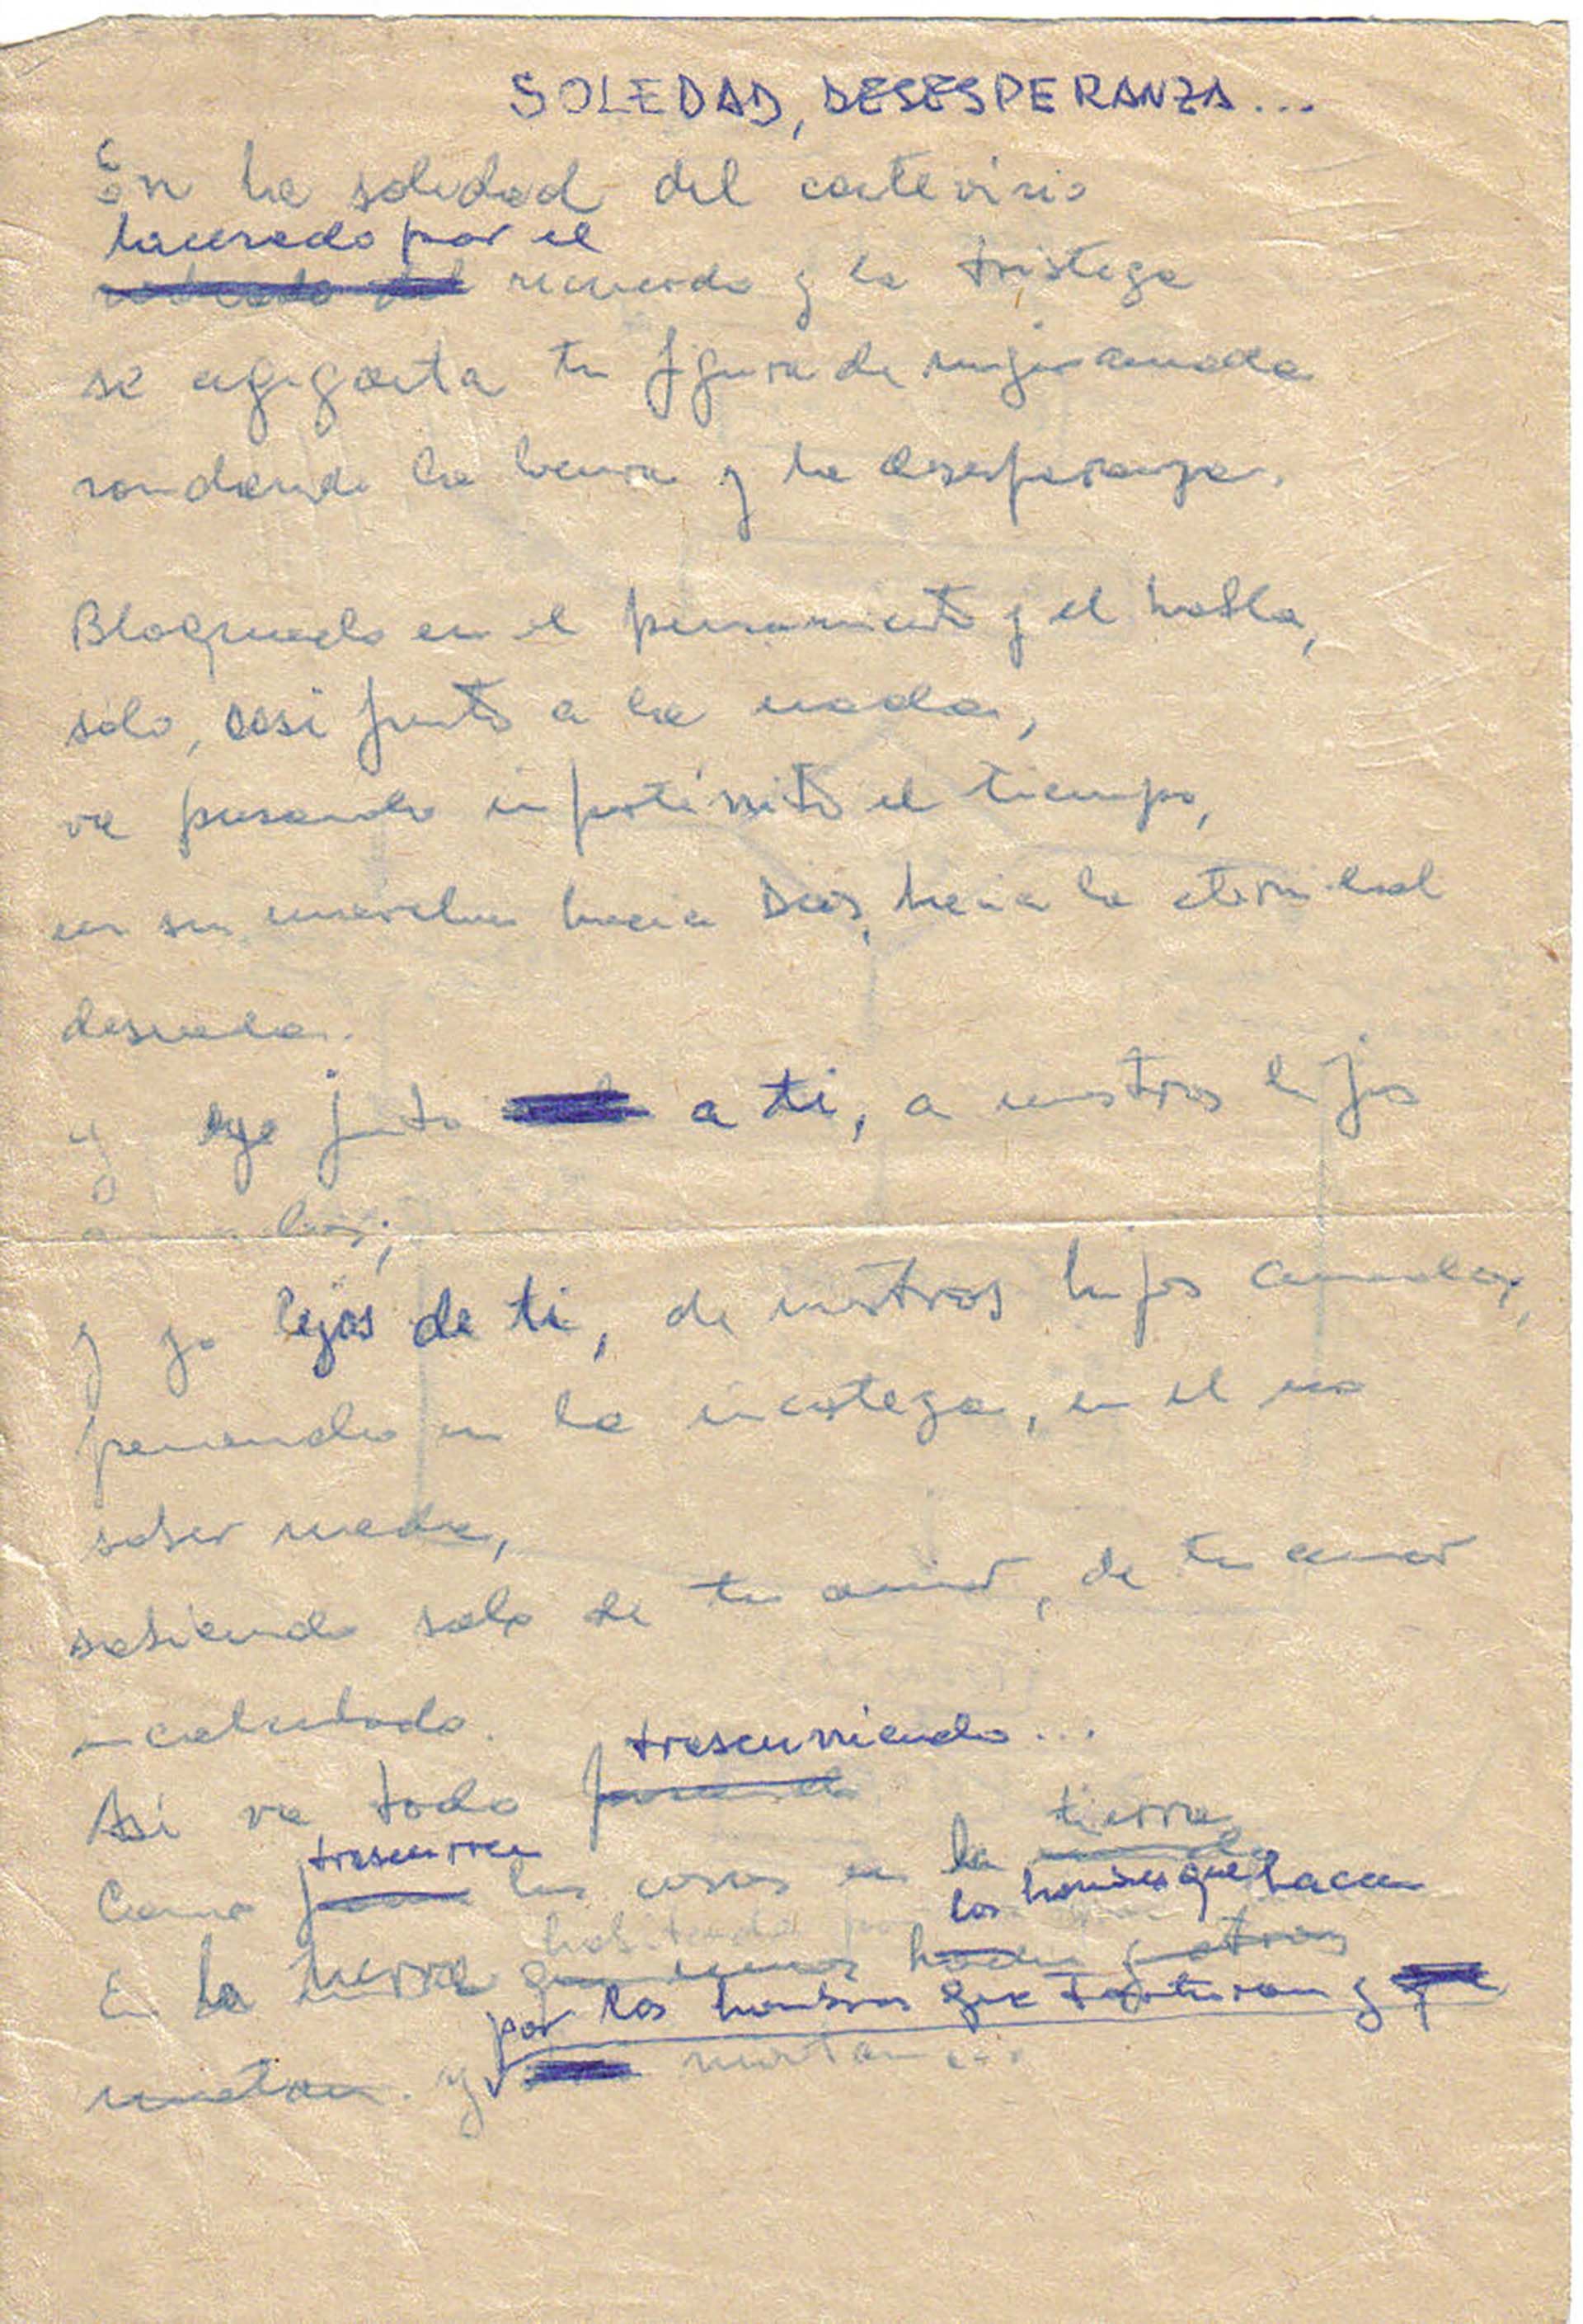 SOLEDAD, DESESPERANZA...
En la soledad del cautiverio
lacerado por el
recuerdo y la tristeza
se agiganta tu figura de mujer amada
rondando la locura y la desesperanza.
Bloqueado en el pensamiento y el habla,
solo, casi junto a la nada,
va pasando impertérrito el tiempo,
en su marcha hacia Dios, hacia la eternidad
deseada.
y yo junto a ti, a nuestros hijos
amados;
y yo lejos de ti, de nuestros hijos amados,
pensando en la incerteza, en el no
saber nada,
sabiendo solo de tu amor, de tu amor
incalculado.
trascurriendo...
Así va todo pasando
tierra
trascurren
Como las cosas en la
los hombres que hacen
En la tierra
por los hombres que torturan y
matan. y matan...